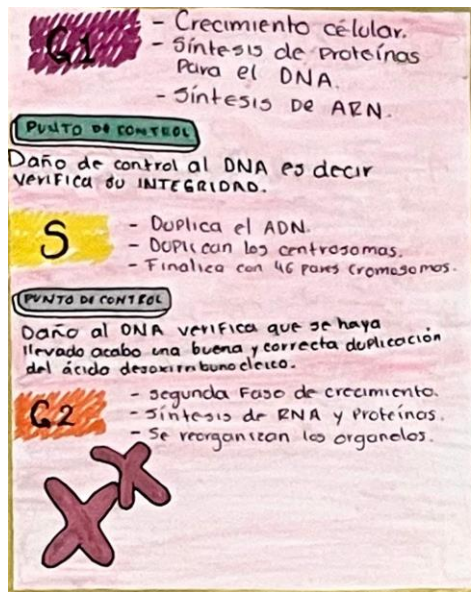 G1
- Crecimiento célular.
- Síntesis de Proteínas
Para el DNA.
- Síntesis DE ARN.
PUNTO DE CONTROL
Daño de control al DNA es decir
verifica su INTEGRIDAD.
S
- Duplica el ADN.
- Duplican los centrosomas.
- Finalica con 46 pares cromosomas.
PUNTO DE CONTROL
Daño al DNA verifica que se haya
llevado acabo una buena y correcta duplicación
del ácido desoxirribunocleico.
G2
- Segunda Fase de crecimiento.
- Síntesis de RNA y Proteínas.
- Se reorganizan los organelos.